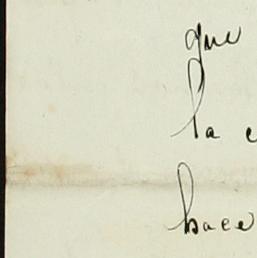 que
la
hace